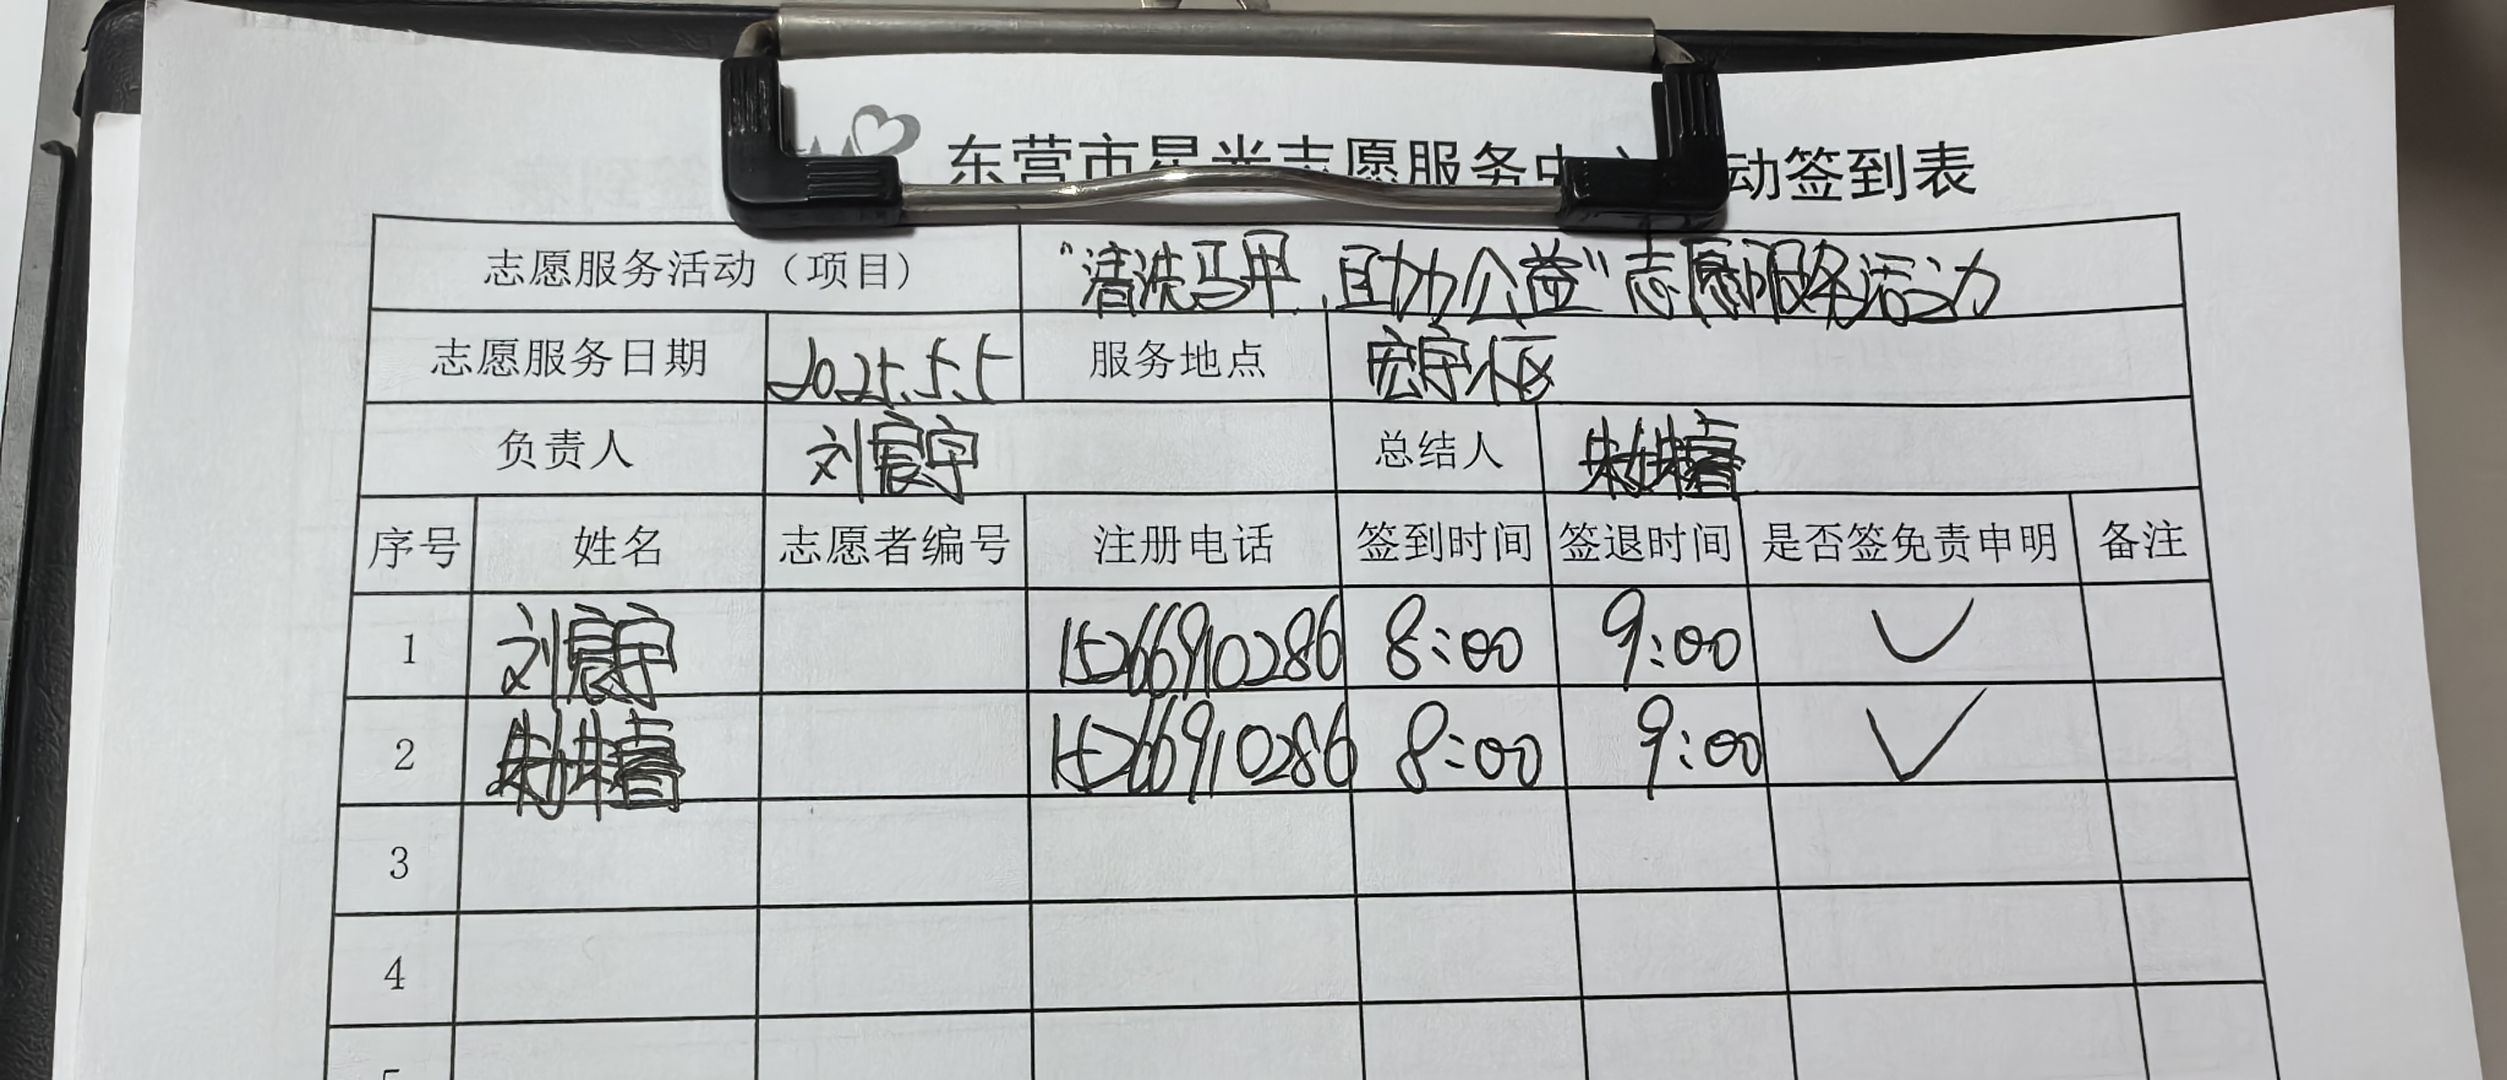 东营市星光志愿服务中 动签到表
志愿服务活动（项目） “清洗马甲，助力公益”志愿服务活动
志愿服务日期 2025.5.5 服务地点 宏宇小区
负责人 刘宸宇 总结人
序号 姓名 志愿者编号 注册电话 签到时间 签退时间 是否签免责申明 备注
1 刘宸宇 15266910286 8:00 9:00 ✓
2 15266910286 8:00 9:00 ✓
3
4